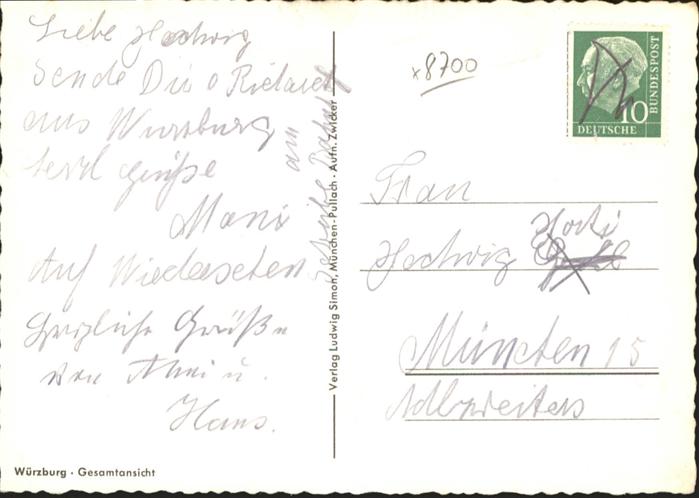 Liebe Hedwig
Sende Dir
aus Würzburg
herzl Grüße
Mani
Auf Wiedersehen
Herzliche Grüße
von u.
Hans.
am
Verlag Ludwig Simon, München-Pullach · Aufn. Zwicker
x8700
DEUTSCHE
BUNDESPOST
10
Frau
Hedwig
München 15
Würzburg · Gesamtansicht